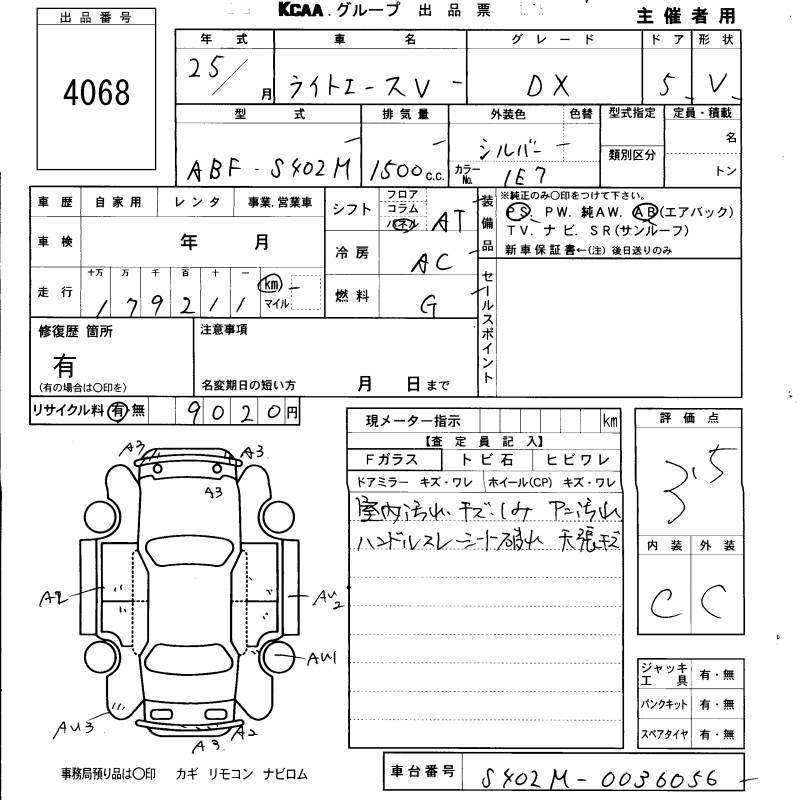 KCAA.グループ 出品票
主催者用
出品番号
4068
年式 車名 グレード ドア 形状
25/ 月 ライトエースV DX 5 V
型式 排気量 外装色 色替 型式指定 定員・積載
ABF-S402M 1500c.c. シルバー 名
カラーNo. 1E7 類別区分 トン
車歴 自家用 レンタ 事業.営業車
車検 年 月
走行 十万 万 千 百 十 一
179211 km マイル
シフト フロア コラム パネル AT
冷房 AC
燃料 G
装備品
※純正のみ〇印をつけて下さい。
PS. PW. 純AW. AB(エアバック)
TV. ナビ. SR(サンルーフ)
新車保証書←(注) 後日送りのみ
セールスポイント
修復歴 箇所
有
(有の場合は〇印を)
注意事項
名変期日の短い方 月 日まで
リサイクル料 有・無 9020円
現メーター指示 km
【査定員記入】
Fガラス トビ石 ヒビワレ
ドアミラー キズ・ワレ ホイール(CP) キズ・ワレ
室内汚れ キズ.しみ アニ汚れ
ハンドルスレ シート破れ 天張キズ
評価点
3.5
内装 外装
C C
A3 A3
A3
A2 AU2
AU1
AU3 A2
A3
ジャッキ工具 有・無
パンクキット 有・無
スペアタイヤ 有・無
事務局預り品は〇印 カギ リモコン ナビロム
車台番号 S402M-0036056